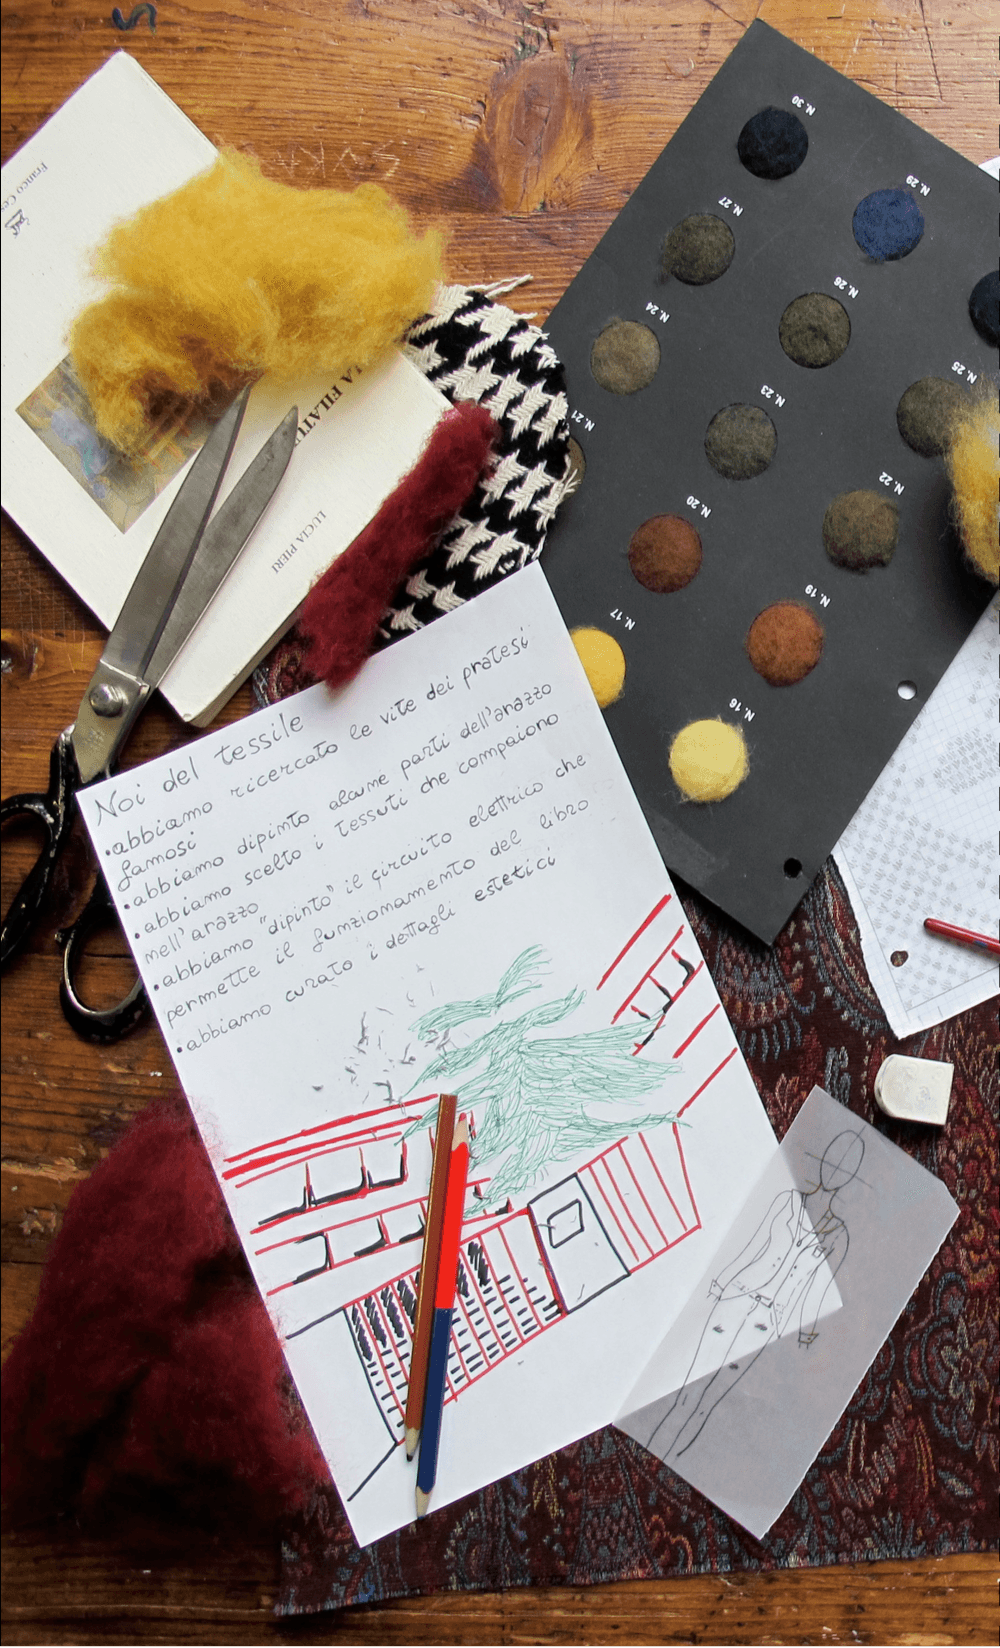 Franco
LA FILAT
LUCIA PIERI
N. 30
N. 29
N. 27
N. 26
N. 24
N. 25
N. 23
N. 21
N. 22
N. 20
N. 19
N. 17
N. 16
Noi del tessile
•abbiamo ricercato le vite dei pratesi
famosi
•abbiamo dipinto alcune parti dell'arazzo
•abbiamo scelto i tessuti che compaiono
nell'arazzo
•abbiamo "dipinto" il circuito elettrico che
permette il funzionamento del libro
•abbiamo curato i dettagli estetici